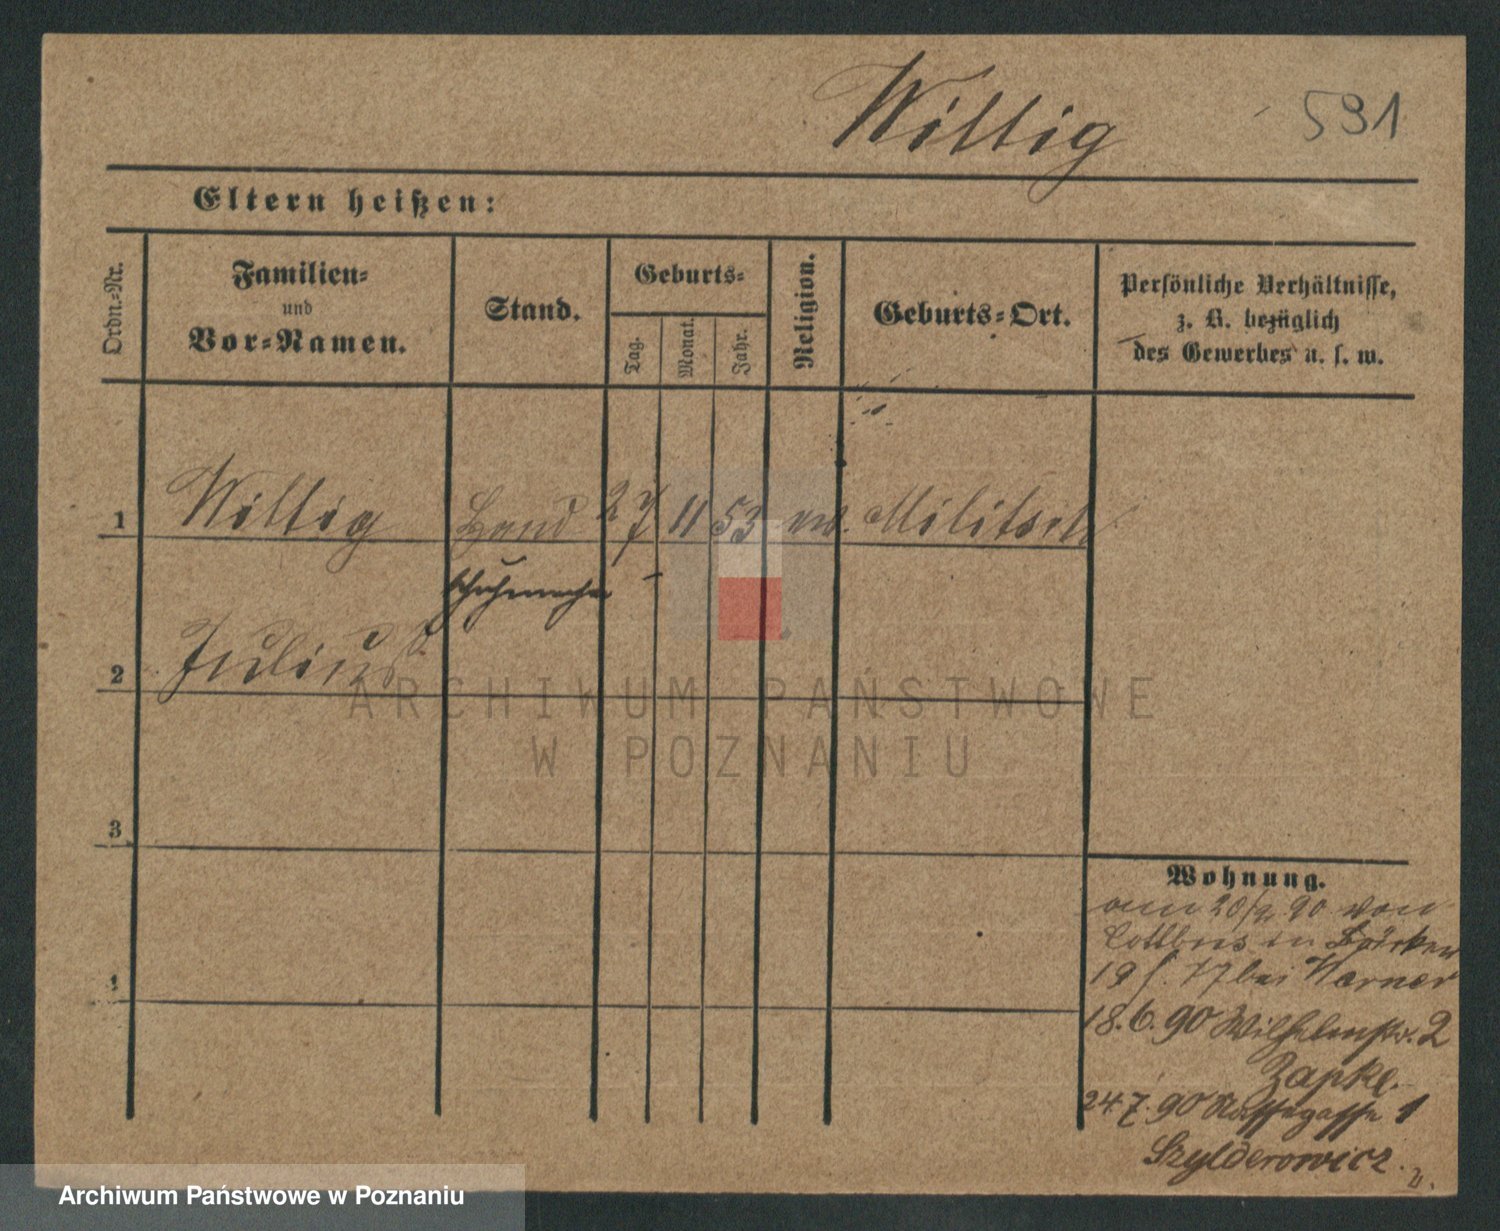 Wittig 591
Eltern heißen:
Ordn.=Nr.
Familien=
und
Vor=Namen.
Stand.
Geburts=
Tag.
Monat.
Jahr.
Religion.
Geburts=Ort.
Persönliche Verhältnisse,
z. B. bezüglich
des Gewerbes u. s. w.
1 Wittig 27 11 53 ev. Militsch
schuhmacher
2 Julius
3
4
Wohnung.
90 von
Cottbus in
bei Warner
18.6.90 Wilhelmstr. 2
Zapke.
24.7.90 1
Szylderowicz.
ARCHIWUM PAŃSTWOWE
W POZNANIU
Archiwum Państwowe w Poznaniu